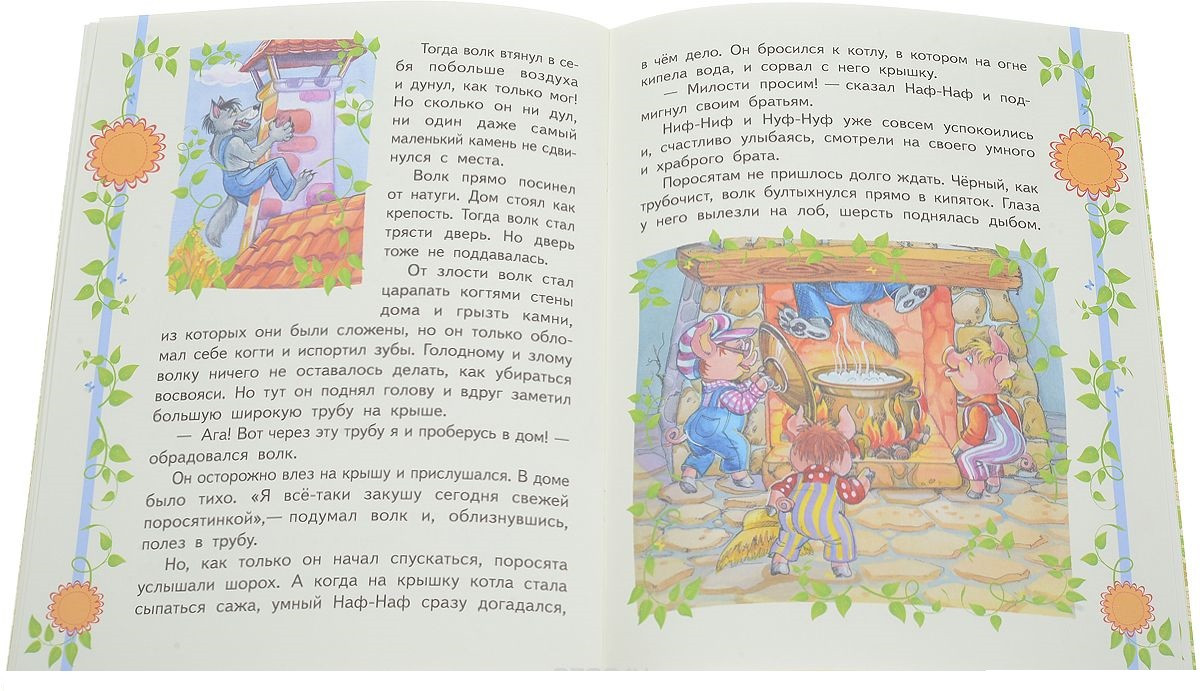 Тогда волк втянул в се-
бя побольше воздуха
и дунул, как только мог!
Но сколько он ни дул,
ни один даже самый
маленький камень не сдви-
нулся с места.
Волк прямо посинел
от натуги. Дом стоял как
крепость. Тогда волк стал
трясти дверь. Но дверь
тоже не поддавалась.
От злости волк стал
царапать когтями стены
дома и грызть камни,
из которых они были сложены, но он только обло-
мал себе когти и испортил зубы. Голодному и злому
волку ничего не оставалось делать, как убираться
восвояси. Но тут он поднял голову и вдруг заметил
большую широкую трубу на крыше.
— Ага! Вот через эту трубу я и проберусь в дом! —
обрадовался волк.
Он осторожно влез на крышу и прислушался. В доме
было тихо. «Я всё-таки закушу сегодня свежей
поросятинкой»,— подумал волк и, облизнувшись,
полез в трубу.
Но, как только он начал спускаться, поросята
услышали шорох. А когда на крышку котла стала
сыпаться сажа, умный Наф-Наф сразу догадался,
в чём дело. Он бросился к котлу, в котором на огне
кипела вода, и сорвал с него крышку.
— Милости просим! — сказал Наф-Наф и под-
мигнул своим братьям.
Ниф-Ниф и Нуф-Нуф уже совсем успокоились
и, счастливо улыбаясь, смотрели на своего умного
и храброго брата.
Поросятам не пришлось долго ждать. Чёрный, как
трубочист, волк бултыхнулся прямо в кипяток. Глаза
у него вылезли на лоб, шерсть поднялась дыбом.